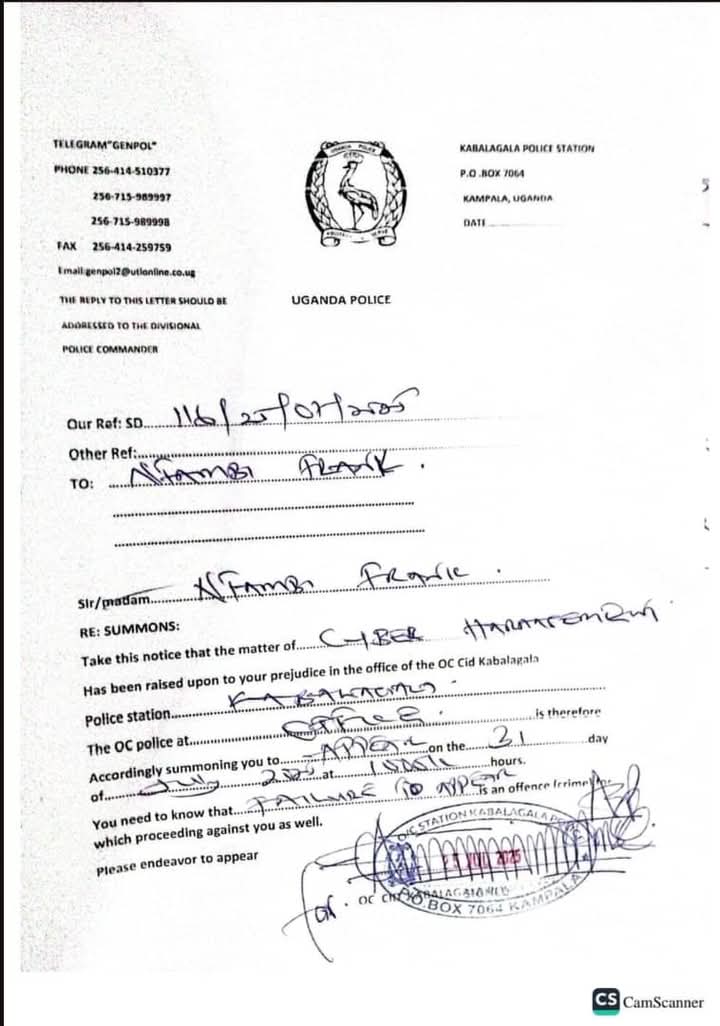 TELEGRAM"GENPOL"
PHONE 256-414-510377
256-715-989997
256-715-989998
FAX 256-414-259759
Email:genpol2@utlonline.co.ug
THE REPLY TO THIS LETTER SHOULD BE
ADDRESSED TO THE DIVISIONAL
POLICE COMMANDER
UGANDA POLICE
KABALAGALA POLICE STATION
P.O.BOX 7064
KAMPALA, UGANDA
DATE
UGANDA POLICE
Our Ref: SD 116/25/07/2025
Other Ref:
TO: NTAMBI FRANK.
Sir/madam NTAMBI FRANK.
RE: SUMMONS:
Take this notice that the matter of CYBER
Has been raised upon to your prejudice in the office of the OC Cid Kabalagala
Police station KABALAGALA
The OC police at OFFICE. is therefore
Accordingly summoning you to APPEAR on the 31 day
of July at hours.
You need to know that FAILURE TO APPEAR is an offence (crime)
which proceeding against you as well.
Please endeavor to appear
for. OC
STATION KABALAGALA
2025
BOX 7064 KAMPALA
CS CamScanner